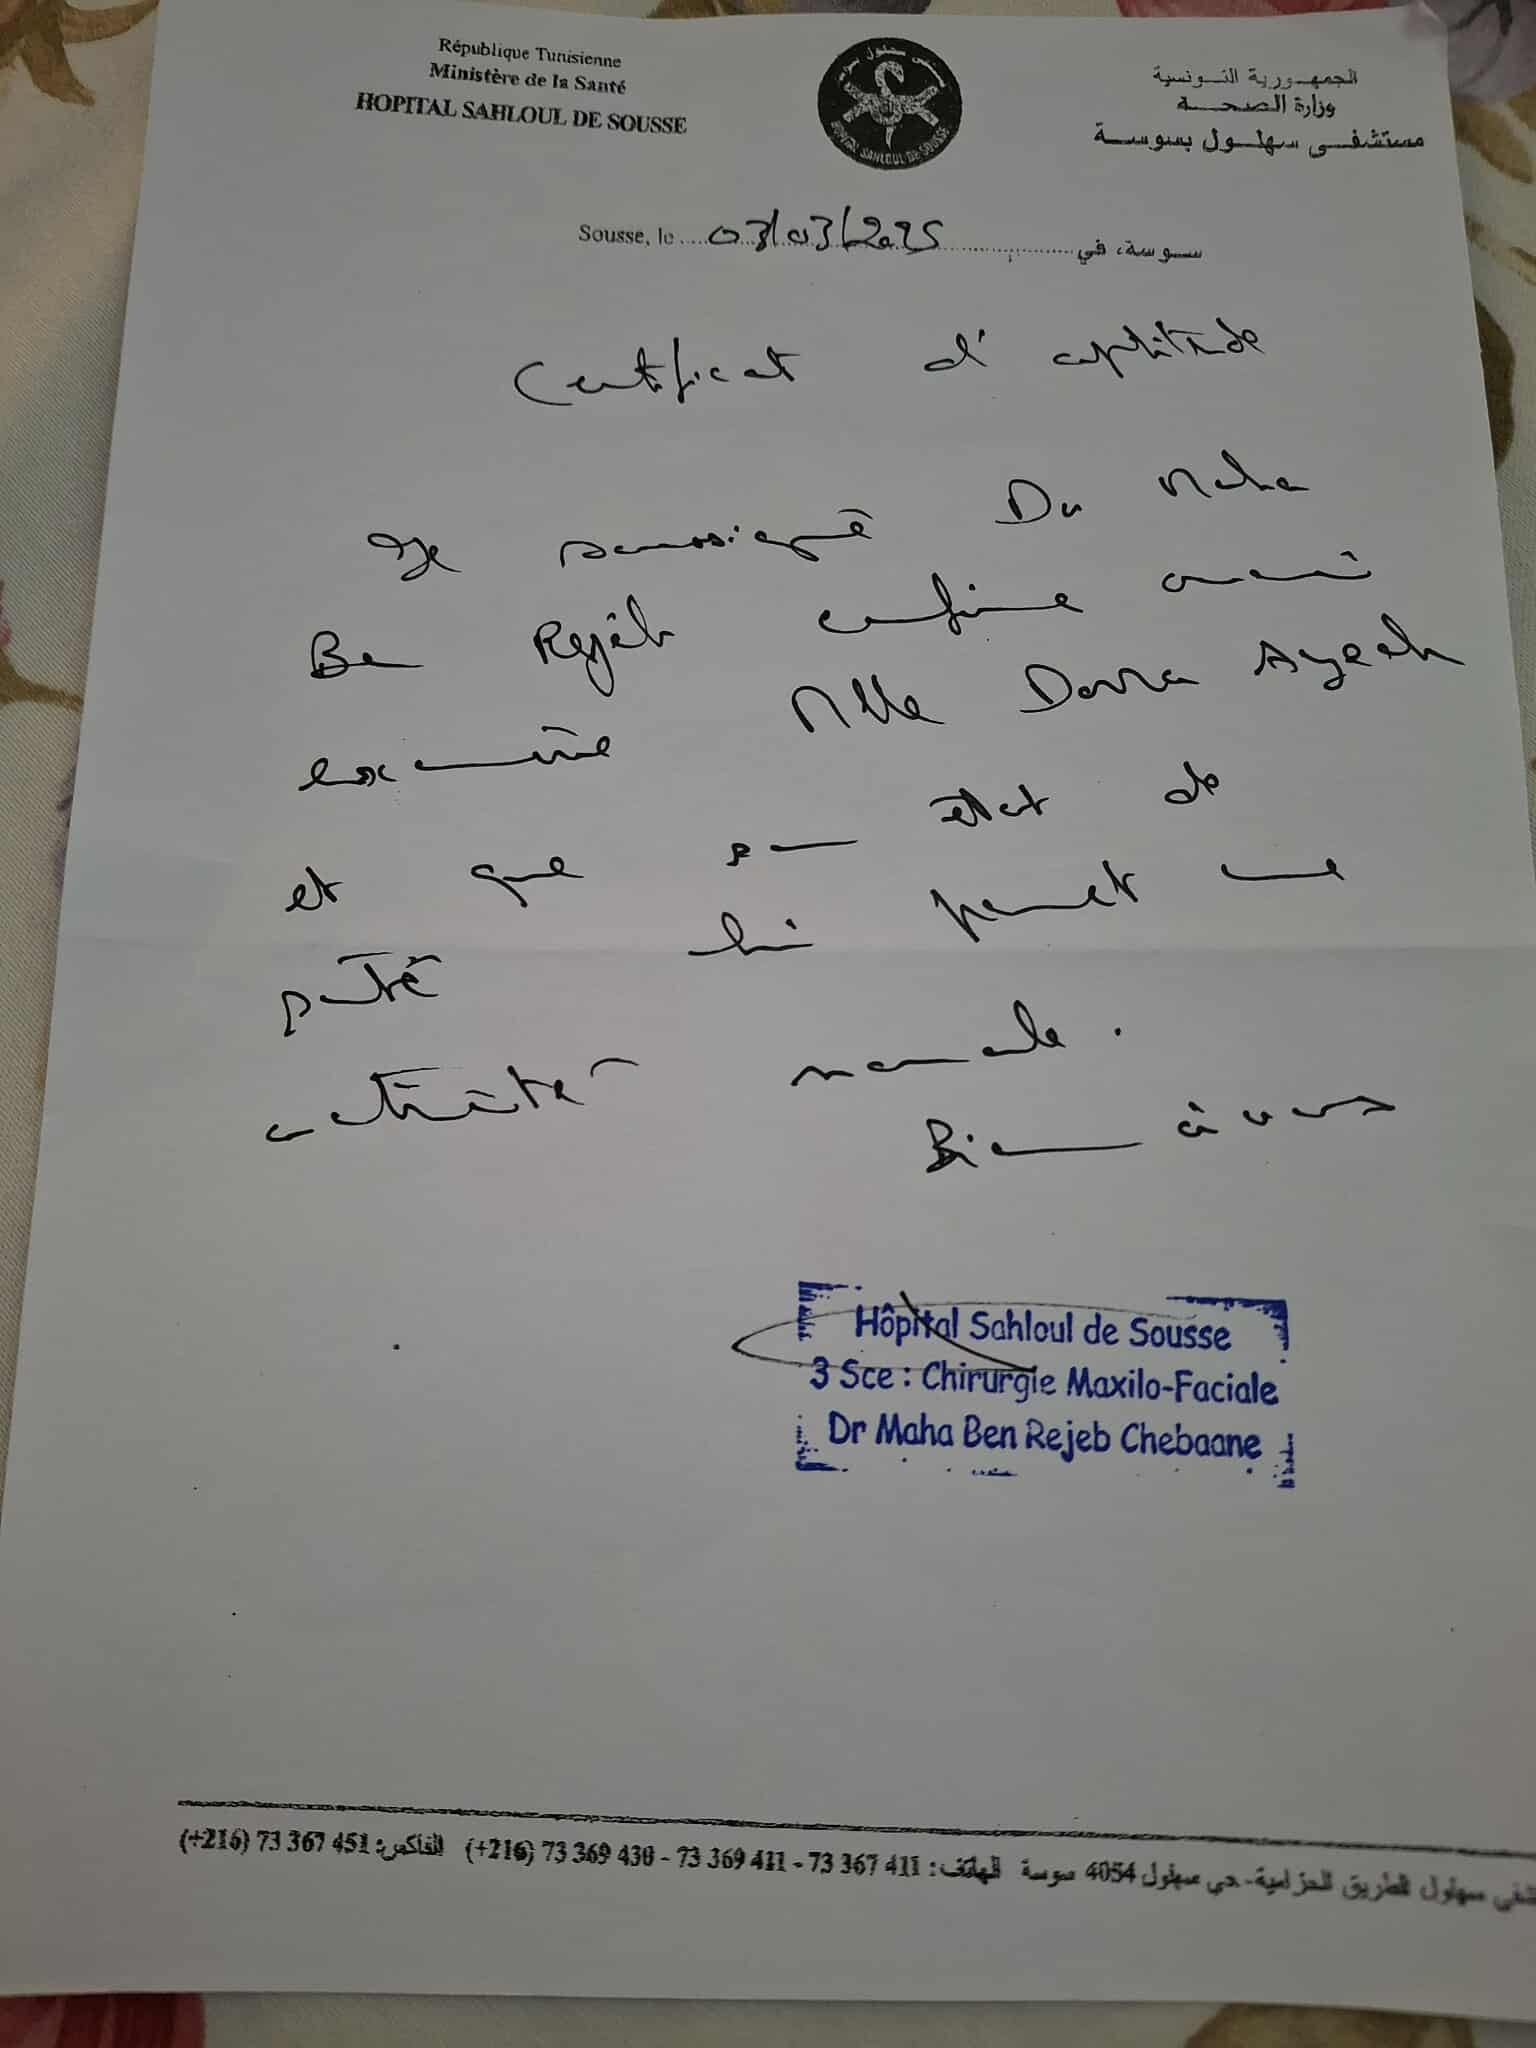 République Tunisienne
Ministère de la Santé
HOPITAL SAHLOUL DE SOUSSE
الجمهورية التونسية
وزارة الصحة
مستشفى سهلول بسوسة
HOPITAL SAHLOUL DE SOUSSE
Sousse, le 03/03/2025 سوسة، في
Certificat d'aptitude
Je soussigné Dr Maha
Ben Rejeb confirme avoir
examiné Mlle Dorra Ayech
et que son état de
santé lui permet une
activité normale.
Bien à vous
Hôpital Sahloul de Sousse
3 Sce : Chirurgie Maxilo-Faciale
Dr Maha Ben Rejeb Chebaane
سهلول الطريق الحزامية - حي سهلول 4054 سوسة الهاتف : 73 367 411 - 73 369 411 - 73 369 430 (+216) الفاكس: 73 367 451 (+216)